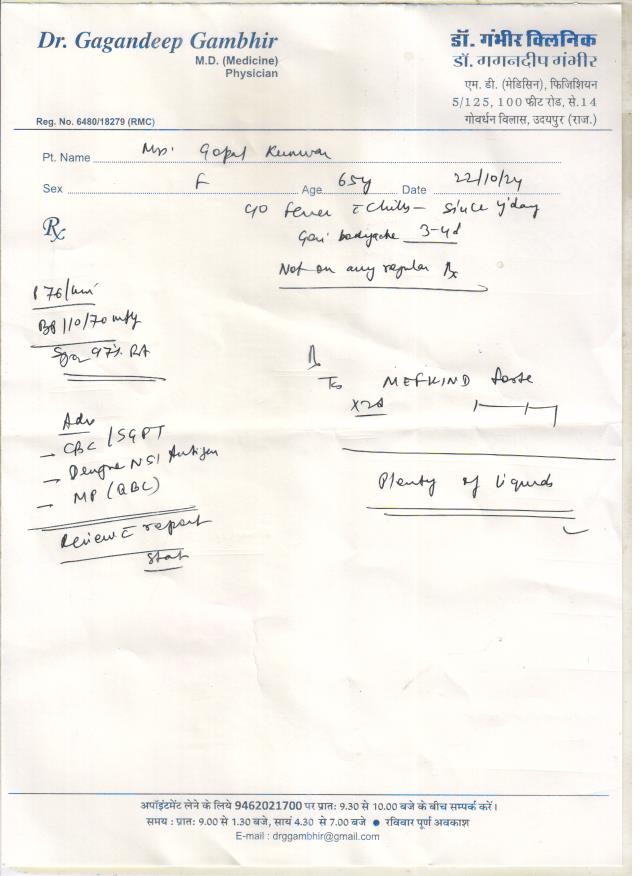 Dr. Gagandeep Gambhir
M.D. (Medicine)
Physician
Reg. No. 6480/18279 (RMC)
डॉ. गंभीर क्लिनिक
डॉ. गगनदीप गंभीर
एम. डी. (मेडिसिन), फिजिशियन
5/125, 100 फीट रोड, से.14
गोवर्धन विलास, उदयपुर (राज.)
Pt. Name Mrs. Gopal Kunwar
Sex F Age 65y Date 22/10/24
Rx
c/o fever c chills - since y'day
Gen bodyache 3-4d
Not on any regular Rx
P 76/min
BP 110/70 mmHg
97% RA
Adv
→ CBC / SGPT
→ Dengue NS1 Antigen
→ MP (QBC)
Review c report
stat
Rx
MEFKIND forte
Plenty of liquids
अपॉइंटमेंट लेने के लिये 9462021700 पर प्रातः 9.30 से 10.00 बजे के बीच सम्पर्क करें।
समय : प्रातः 9.00 से 1.30 बजे, सायं 4.30 से 7.00 बजे ● रविवार पूर्ण अवकाश
E-mail : drggambhir@gmail.com